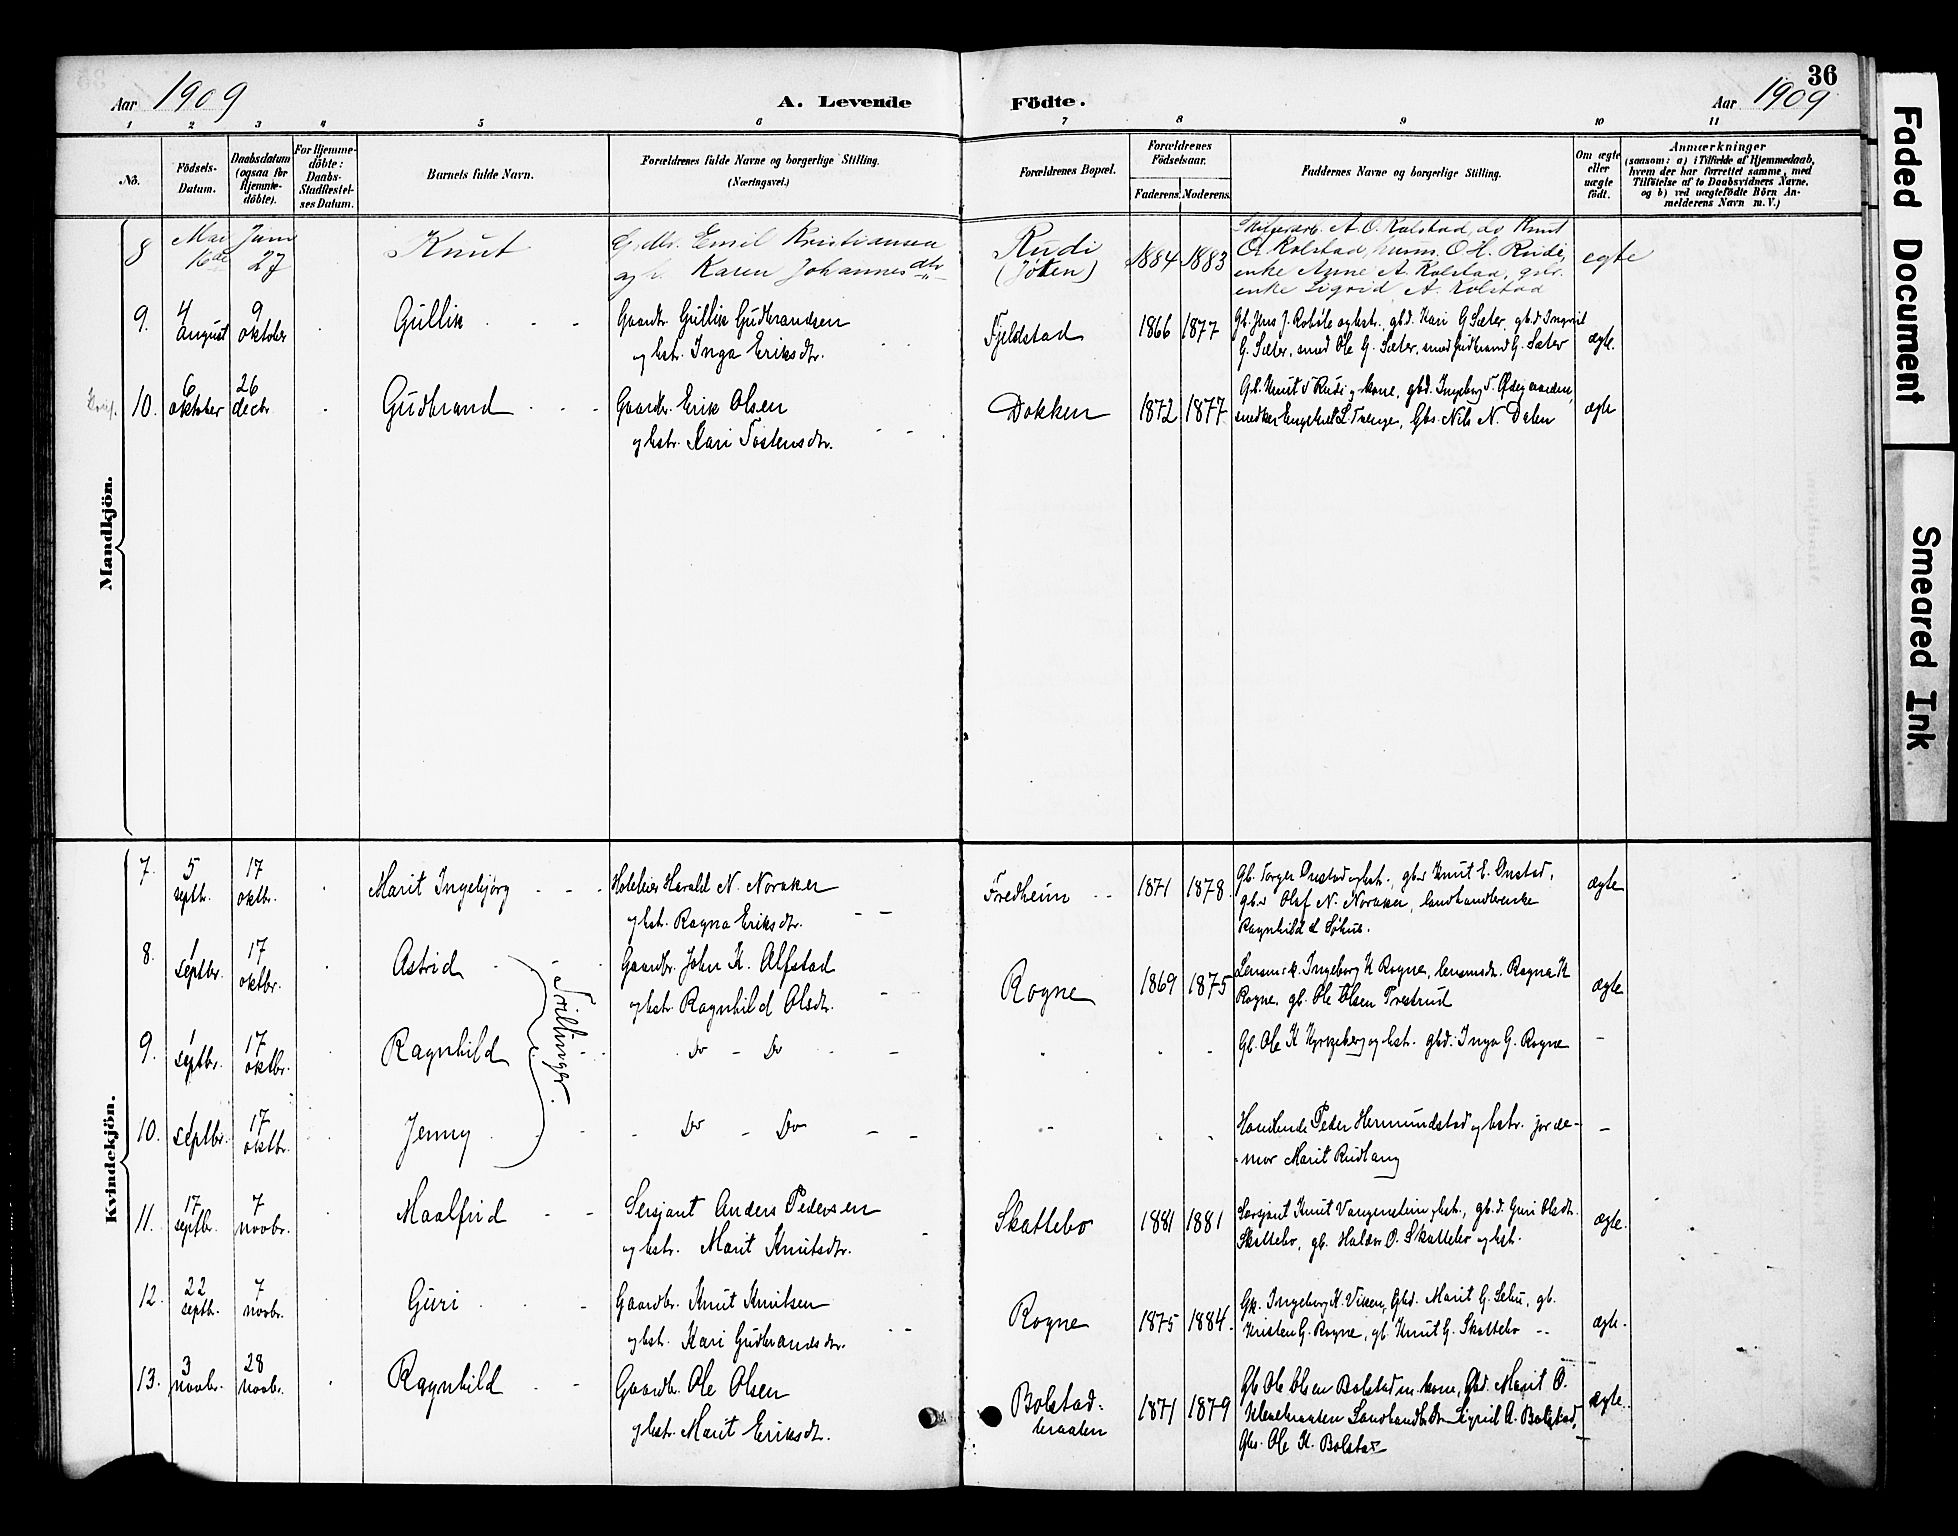 36
Aar 1909 A. Levende Födte. Aar 1909
1 2 3 4 5 6 7 8 9 10 11
No. Födsels-Datum. Daabsdatum (ogsaa for Hjemmedöbte). For Hjemmedöbte: Daabs-Stadfæstelses Datum. Barnets fulde Navn. Forældrenes fulde Navne og borgerlige Stilling. (Næringsvei.) Forældrenes Bopæl. Forældrenes Födselsaar. Faderens. Moderens. Faddernes Navne og borgerlige Stilling. Om ægte eller uægte födt. Anmærkninger (saasom: a) i Tilfælde af Hjemmedaab, hvem der har forrettet samme, med Tilföielse af to Daabsvidners Navne, og b) ved uægtefödte Börn Anmelderens Navn m. V.)
Mandkjön.
8 Mai 16de Juni 27 Knut Emil Kristiansen
Karen Johannesdtr Rudi 1884 1883 A. O. Kolstad, do Knut
O. Kolstad, O. H. Rudi, egte
enke Anne A. Kolstad,
enke Sigrid A. Kolstad
9. 4 august 9 oktober Gullik Gaardbr. Gullik Gudbrandsen
og hstr. Inga Eriksdtr. Fjeldstad 1866 1877 Gb. Jens J. Robøle og hstr., gbd. Kari G Sæter, gbd Ingrid
G. Sæter, smed Ole G. Sæter, smed Gudbrand G. Sæter ægte.
10. 6 oktober 26 decbr Gudbrand Gaardbr. Erik Olsen
og hstr. Kari Tostensdtr. Dokken 1872 1877 Gb. Knut Rudi og kone, gbd. Ingeborg T. Ødegaarden,
Gbs. Nils N. Dalen ægte
Kvindekjön.
7. 5 septbr. 17 oktbr. Marit Ingebjørg Hoteleier Harald N. Noraker
og hstr. Ragna Eriksdtr. Fredheim 1871 1878. Gb. Torger Onstad og hstr., gbs Knut E. Onstad,
gbs Olaf N. Noraker, landhandlerenke
Ragnhild
ægte
8. 1 septbr. 17 oktbr. Astrid Gaardbr. John K. Alfstad
og hstr. Ragnhild Olsdtr. Rogne 1869 1875 Lensm.k. Ingeborg K Rogne, lensmdtr. Ragna K
Rogne, gb. Ole Olsen Trestrud ægte
Trillinger.
9. 1 septbr. 17 oktbr. Ragnhild Do - Do Gb. Ole K Kyrkeberg og hstr. gbd. Inga G. Rogne -
10. 1 septbr. 17 oktbr. Jenny Do - Do Peder Hermundstad og hstr. jorde-
mor Marit Rudlang -
11. 17 septbr. 7 novbr. Maalfrid Sersjant Anders Pedersen
og hstr. Marit Knutsdtr. Skattebo 1881 1881 Sersjant Knut Vangenstein og hstr., gbd. Guri Olsdtr.
Skattebo, gb. Haldor O. Skattebo og hstr. ægte.
12. 22 septb. 7 novbr. Guri Gaardbr. Knut Knutsen
og hstr. Kari Gudbrandsdtr. Rogne 1875 1884. Gk. Ingeborg K. Viken, Gbd. Marit G. Sebu, gb.
Kristen G. Rogne, gb Knut G. Skattebo ægte.
13. 3 novbr. 28 novbr. Ragnhild Gaardbr. Ole Olsen
og hstr. Marit Eriksdtr. Bolstad-
braaten 1871 1879 Gb Ole Olsen Bolstad m. kone, Gbd. Marit O.
Sigrid A. Bolstad,
Gbs. Ole K. Bolstad ægte.
Faded Document
Smeared Ink